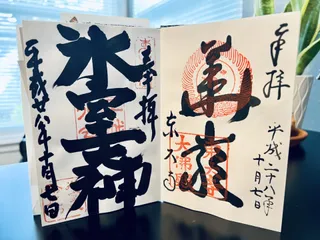 奉拝
氷室大神
平成廿八年十月七日
奉拝
華厳
東大寺
平成二十八年
十月七日